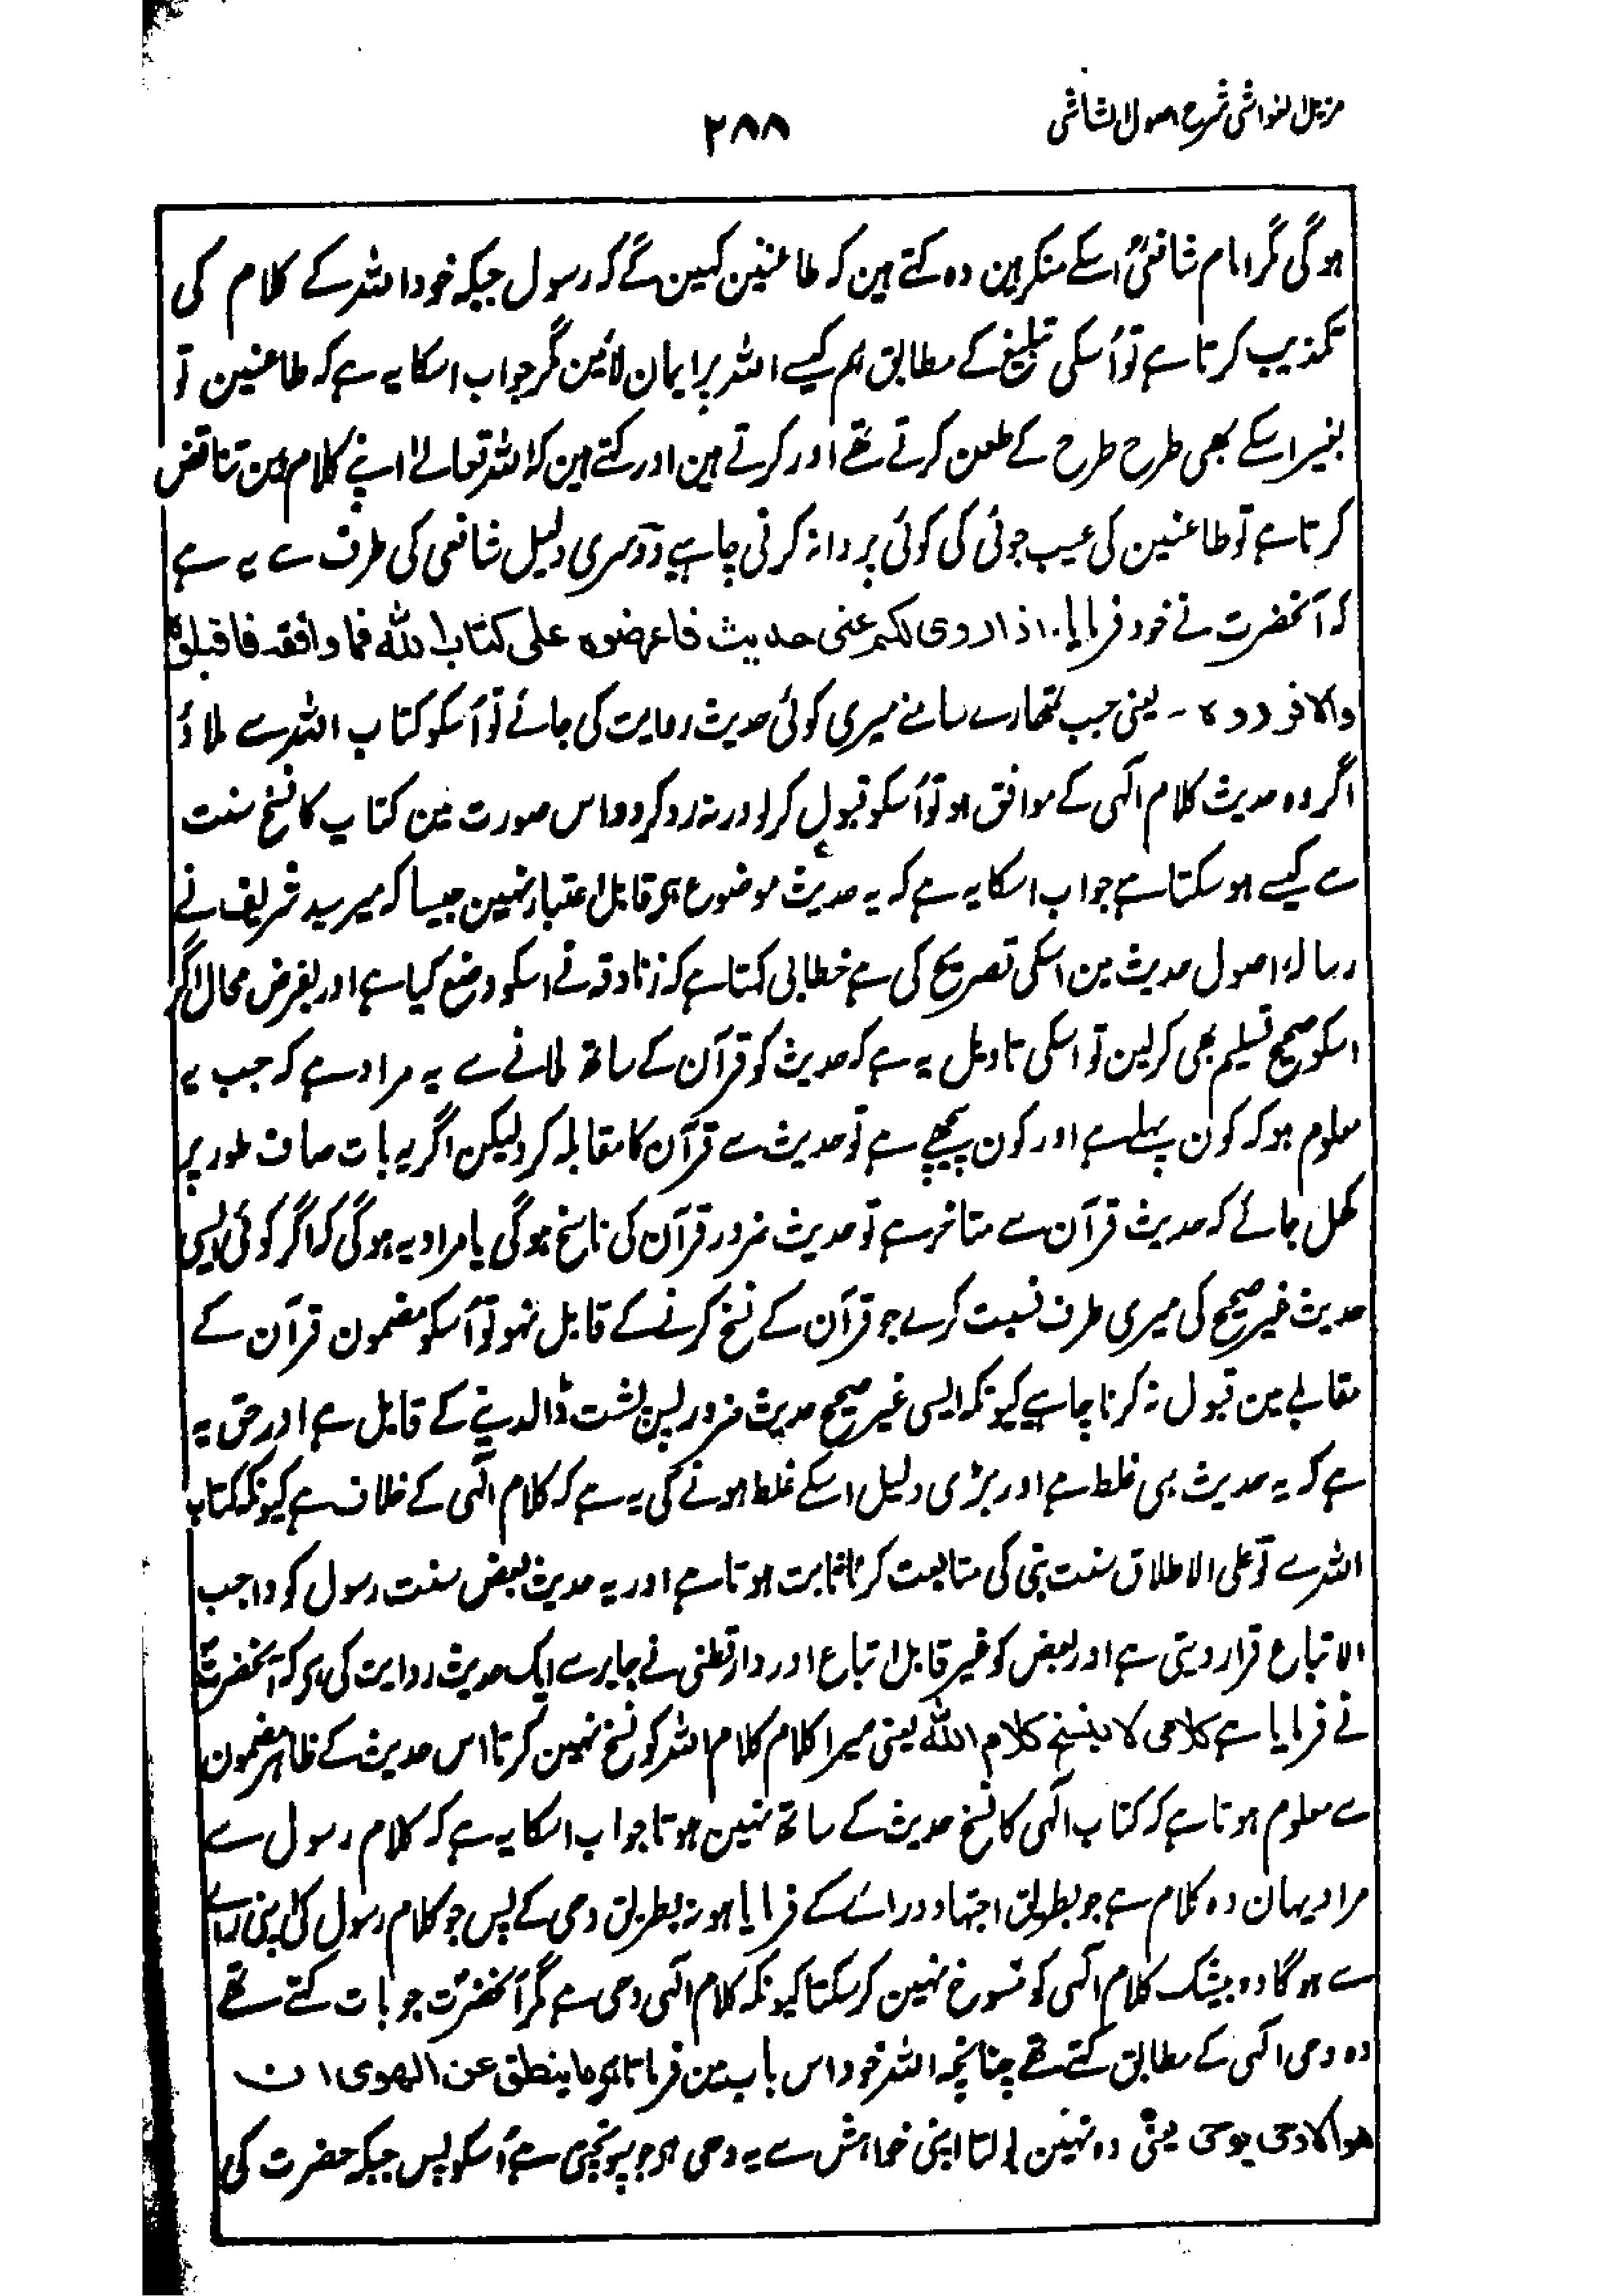 مزیل الغواشی شرح اصول الشاشی
۲۸۸
ہوگی مگر امام شافعیؒ اسکے منکر ہین وہ کہتے ہین کہ طاعنین کہین گے کہ رسول جبکہ خود اللہ کے کلام کی
تکذیب کرتا ہے تو اُسکی تبلیغ کے مطابق ہم کیسے اللہ پر ایمان لائین مگر جواب اسکا یہ ہے کہ طاعنین تو
بغیر اسکے بھی طرح طرح کے طعن کرتے تھے اور کرتے ہین اور کہتے ہین کہ اللہ تعالےٰ اپنے کلام مین تناقض
کرتا ہے تو طاعنین کی عیب جوئی کی کوئی پروا نہ کرنی چاہیے دوسری دلیل شافعی کی طرف سے یہ ہے
کہ آنحضرت نے خود فرمایا۔ اذا روی لکم عنی حدیث فاعرضوہ علی کتاب اللہ فما وافقہ فاقبلوہ
والا فردوہ ۔ یعنی جب تمھارے سامنے میری کوئی حدیث روایت کی جائے تو اُسکو کتاب اللہ سے ملاؤ
اگر وہ حدیث کلام الٰہی کے موافق ہو تو اُسکو قبول کرلو ورنہ رد کردو اس صورت مین کتاب کا نسخ سنت
سے کیسے ہوسکتا ہے جواب اسکا یہ ہے کہ یہ حدیث موضوع ہے قابل اعتبار نہین جیسا کہ میر سید شریف نے
رسالۂ اصول حدیث مین اسکی تصریح کی ہے خطابی کہتا ہے کہ زنادقہ نے اسکو وضع کیا ہے اور بفرض محال اگر
اسکو صحیح تسلیم بھی کرلین تو اسکی تاویل یہ ہے کہ حدیث کو قرآن کے ساتھ ملانے سے یہ مراد ہے کہ جب یہ
معلوم ہو کہ کون پہلے ہے اور کون پیچھے ہے تو حدیث سے قرآن کا مقابلہ کرو لیکن اگر یہ بات صاف طور پر
کھل جائے کہ حدیث قرآن سے متاخر ہے تو حدیث ضرور قرآن کی ناسخ ہوگی یا مراد یہ ہوگی کہ اگر کوئی ایسی
حدیث غیر صحیح کی میری طرف نسبت کرے جو قرآن کے نسخ کرنے کے قابل نہو تو اُسکو مضمون قرآن کے
مقابلے مین قبول نہ کرنا چاہیے کیونکہ ایسی غیر صحیح حدیث ضرور پس پشت ڈالدینے کے قابل ہے اور حق یہ
ہے کہ یہ حدیث ہی غلط ہے اور بڑی دلیل اسکے غلط ہونے کی یہ ہے کہ کلام الٰہی کے خلاف ہے کیونکہ کتاب
اللہ سے تو علی الاطلاق سنت نبی کی متابعت کرنا ثابت ہوتا ہے اور یہ حدیث بعض سنت رسول کو واجب
الاتباع قرار دیتی ہے اور بعض کو غیر قابل اتباع اور دارقطنی نے جابر سے ایک حدیث روایت کی ہے کہ آنحضرتؐ
نے فرمایا ہے کلامی لا ینسخ کلام اللہ یعنی میرا کلام کلام اللہ کو نسخ نہین کرتا اس حدیث کے ظاہر مضمون
سے معلوم ہوتا ہے کہ کتاب الٰہی کا نسخ حدیث کے ساتھ نہین ہوتا جواب اسکا یہ ہے کہ کلام رسول سے
مراد یہان وہ کلام ہے جو بطریق اجتہاد و رائے کے فرمایا ہو نہ بطریق وحی کے پس جو کلام رسول کی اپنی رائے
سے ہوگا وہ بیشک کلام الٰہی کو منسوخ نہین کرسکتا کیونکہ کلام الٰہی وحی ہے مگر آنحضرتؐ جو بات کہتے تھے
وہ وحی الٰہی کے مطابق کہتے تھے چنانچہ اللہ خود اس باب مین فرماتا ہے وما ینطق عن الھوی ان
ھو الا وحی یوحی یعنی وہ نہین بولتا اپنی خواہش سے یہ وحی ہے جو پہونچی ہے اُسکو پس جبکہ حضرت کی